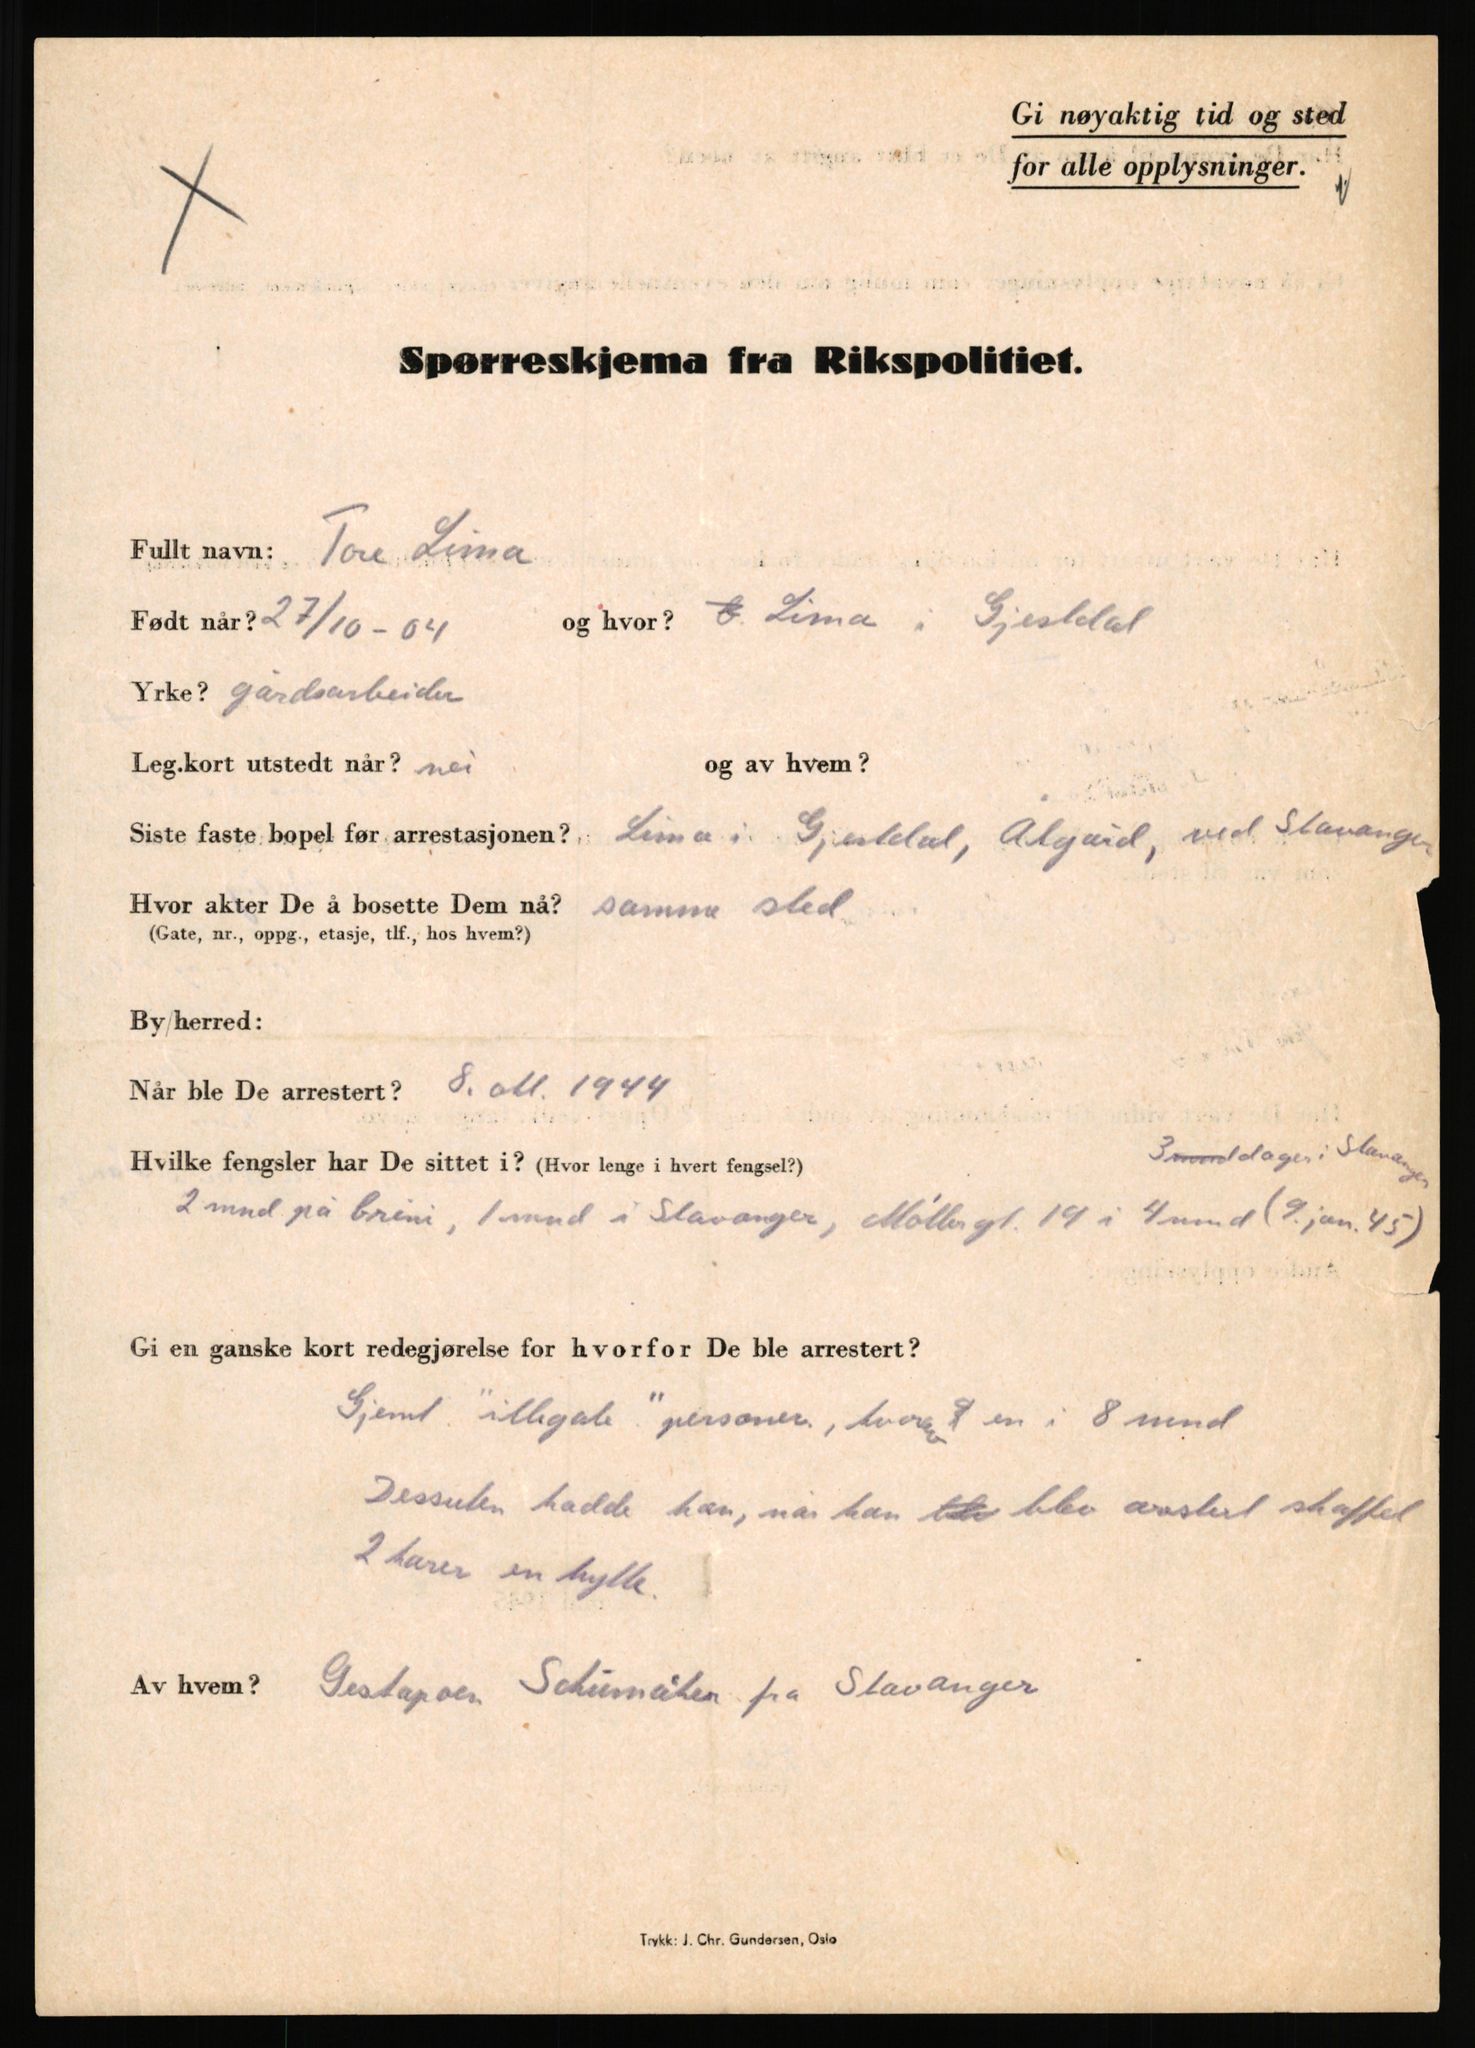 Gi nøyaktig tid og sted
for alle opplysninger.
Spørreskjema fra Rikspolitiet.
Fullt navn: Tore Lima
Født når? 27/10-04 og hvor? Lima i Gjesdal
Yrke? gårdsarbeider
Leg.kort utstedt når? nei og av hvem?
Siste faste bopel før arrestasjonen? Lima i Gjesdal, Algård, ved Stavanger
Hvor akter De å bosette Dem nå? samme sted
(Gate, nr., oppg., etasje, tlf., hos hvem?)
By/herred:
Når ble De arrestert? 8. okt. 1944
Hvilke fengsler har De sittet i? (Hvor lenge i hvert fengsel?) 3 mnd dager i Stavanger
2 mnd på Grini, 1 mnd i Stavanger, Møllergt. 19 i 4 mnd (9. jan. 45)
Gi en ganske kort redegjørelse for hvorfor De ble arrestert?
Gjemt "illegale" personer, hvorav en i 8 mnd
Dessuten hadde han, når han blev arrestert skaffet
2 karer en hytte.
Av hvem? Gestapoen Schümaher fra Stavanger
Trykk: J. Chr. Gundersen, Oslo